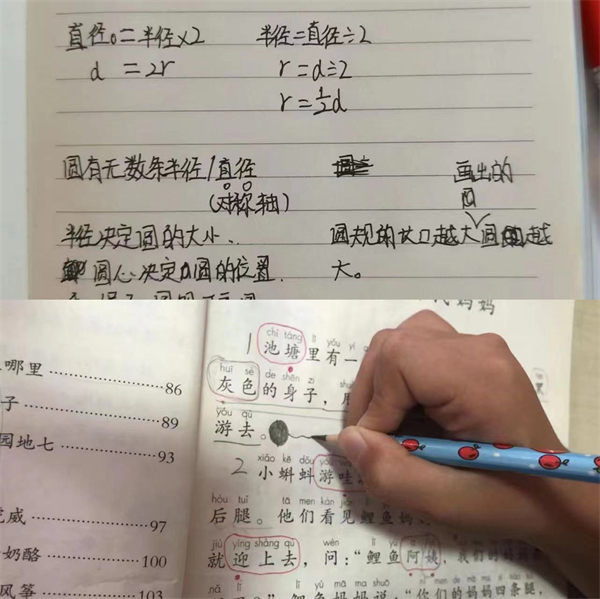 直径=半径×2 半径=直径÷2
d =2r r=d÷2
r=½d
圆有无数条半径/直径 画出的
(对称轴) 圆
半径决定圆的大小. 圆规的 口越大 圆 越
圆心决定 圆的位置. 大。
妈妈
chí táng lǐ yǒu yì
1 池塘里有一
huī sè de shēn zi
哪里 灰色的身子,
86
yóu qù
子 游去。
89
园地七 xiǎo kē dǒu
93 2 小蝌蚪游哇
hòu tuǐ tā men kàn jiàn lǐ yú mā
威 后腿。他们看见鲤鱼妈
97
jiù yíng shàng qù wèn lǐ yú ā yí
奶酪 就迎上去,问:“鲤鱼阿姨,我们的妈妈
100
lǐ yú mā ma shuō
风筝 鲤鱼妈妈说:“你们的妈妈四条腿,
103